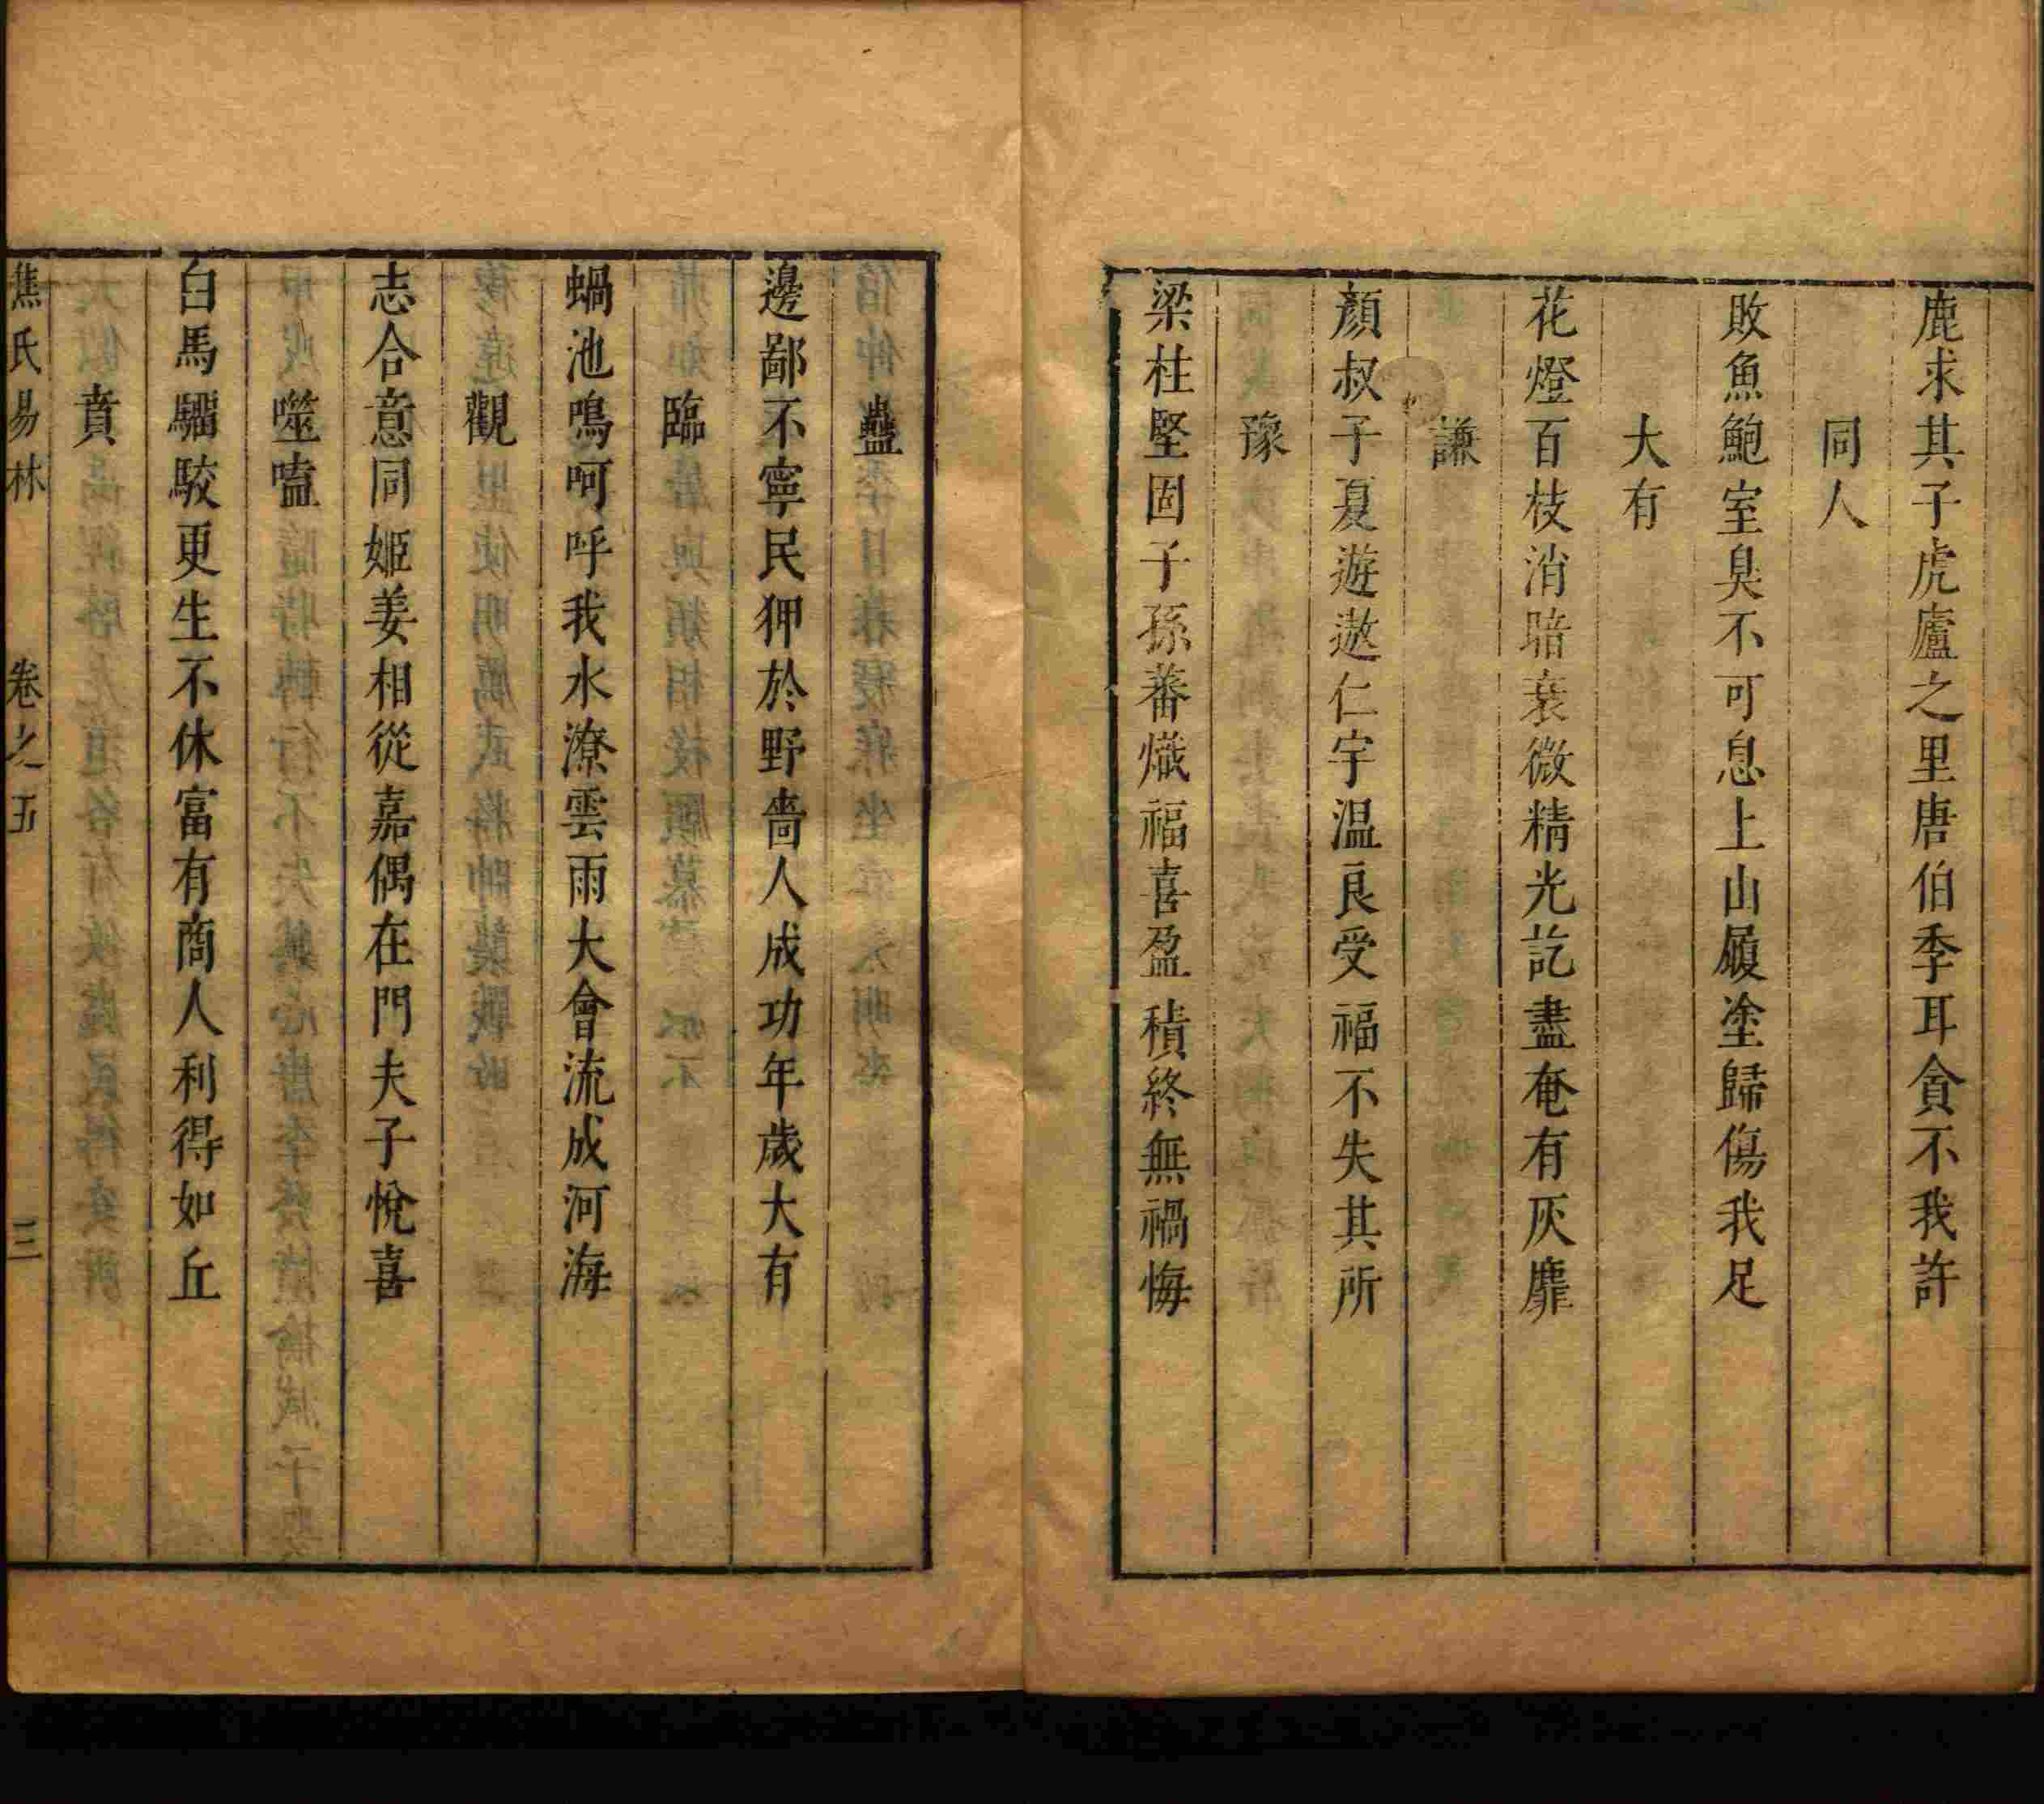 鹿求其子虎廬之里唐伯季耳貪不我許
同人
敗魚鮑室臭不可息上山履塗歸傷我足
大有
花燈百枝消暗衰微精光訖盡奄有灰靡
謙
顏叔子夏遊遨仁宇温良受福不失其所
豫
梁柱堅固子孫蕃熾福喜盈積終無禍悔
蠱
邊鄙不寧民狎於野嗇人成功年歲大有
臨
蝸池鳴呴呼我水潦雲雨大會流成河海
觀
志合意同姬姜相從嘉偶在門夫子悅喜
噬嗑
白馬騮駮更生不休富有商人利得如丘
賁
焦氏易林 卷之五 三